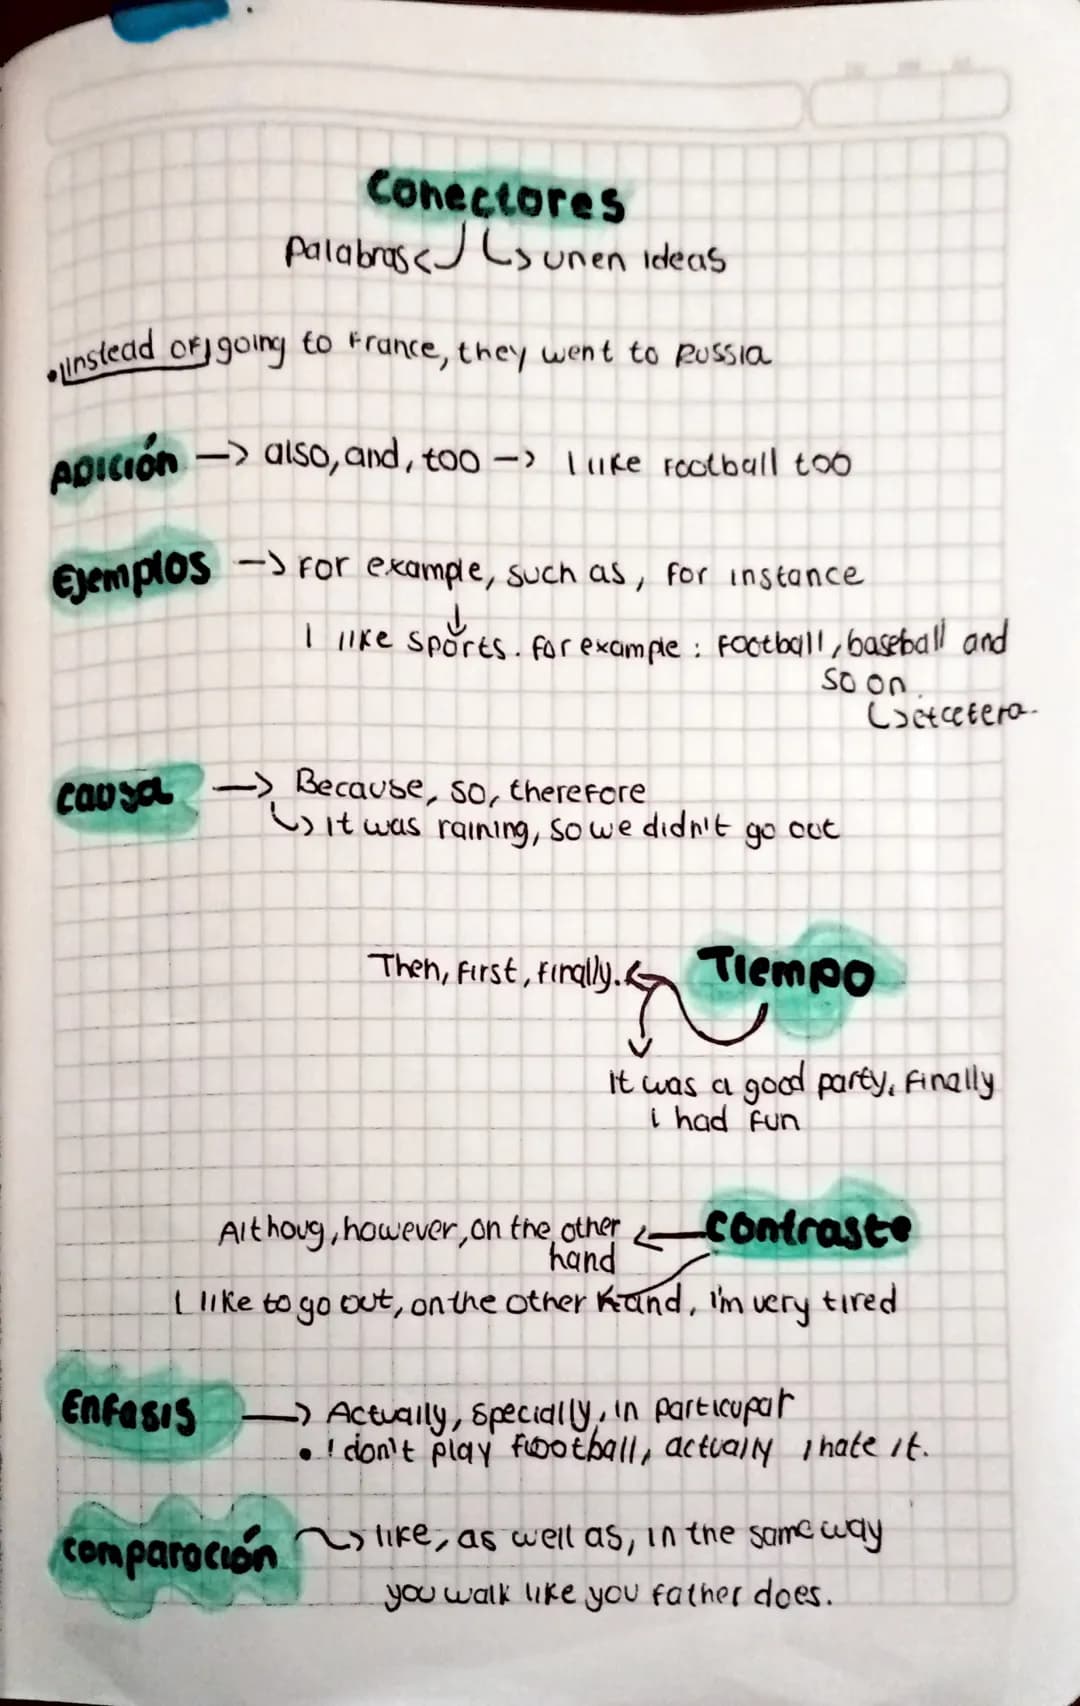 Conectores
Palabras <- -> unen ideas
• Instead of going to France, they went to Russia
Adición -> also, and, too -> I like football too
Ejemplos -> For example, such as, for instance
I like sports. for example : Football, baseball and
so on.
-> etcetera.
causa -> Because, so, therefore
-> it was raining, so we didn't go out
Then, First, Finally. <- Tiempo
It was a good party, Finally
i had fun
Althoug, however, on the other <- Contraste
hand
I like to go out, on the other hand, i'm very tired
Enfasis -> Actually, specially, in particupar
• I don't play football, actually I hate it.
comparación -> like, as well as, in the same way
you walk like you father does.